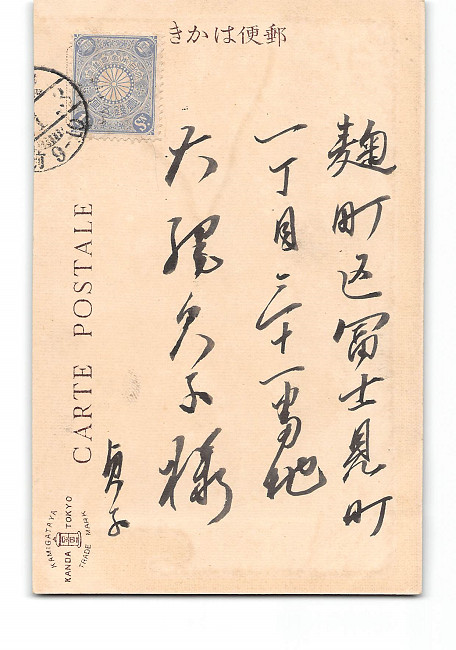 郵便はかき
麹町区冨士見町
一丁目三十一番地
大隈
子様
貞子
CARTE POSTALE
KAMIGATAYA
KANDA TOKYO
TRADE MARK